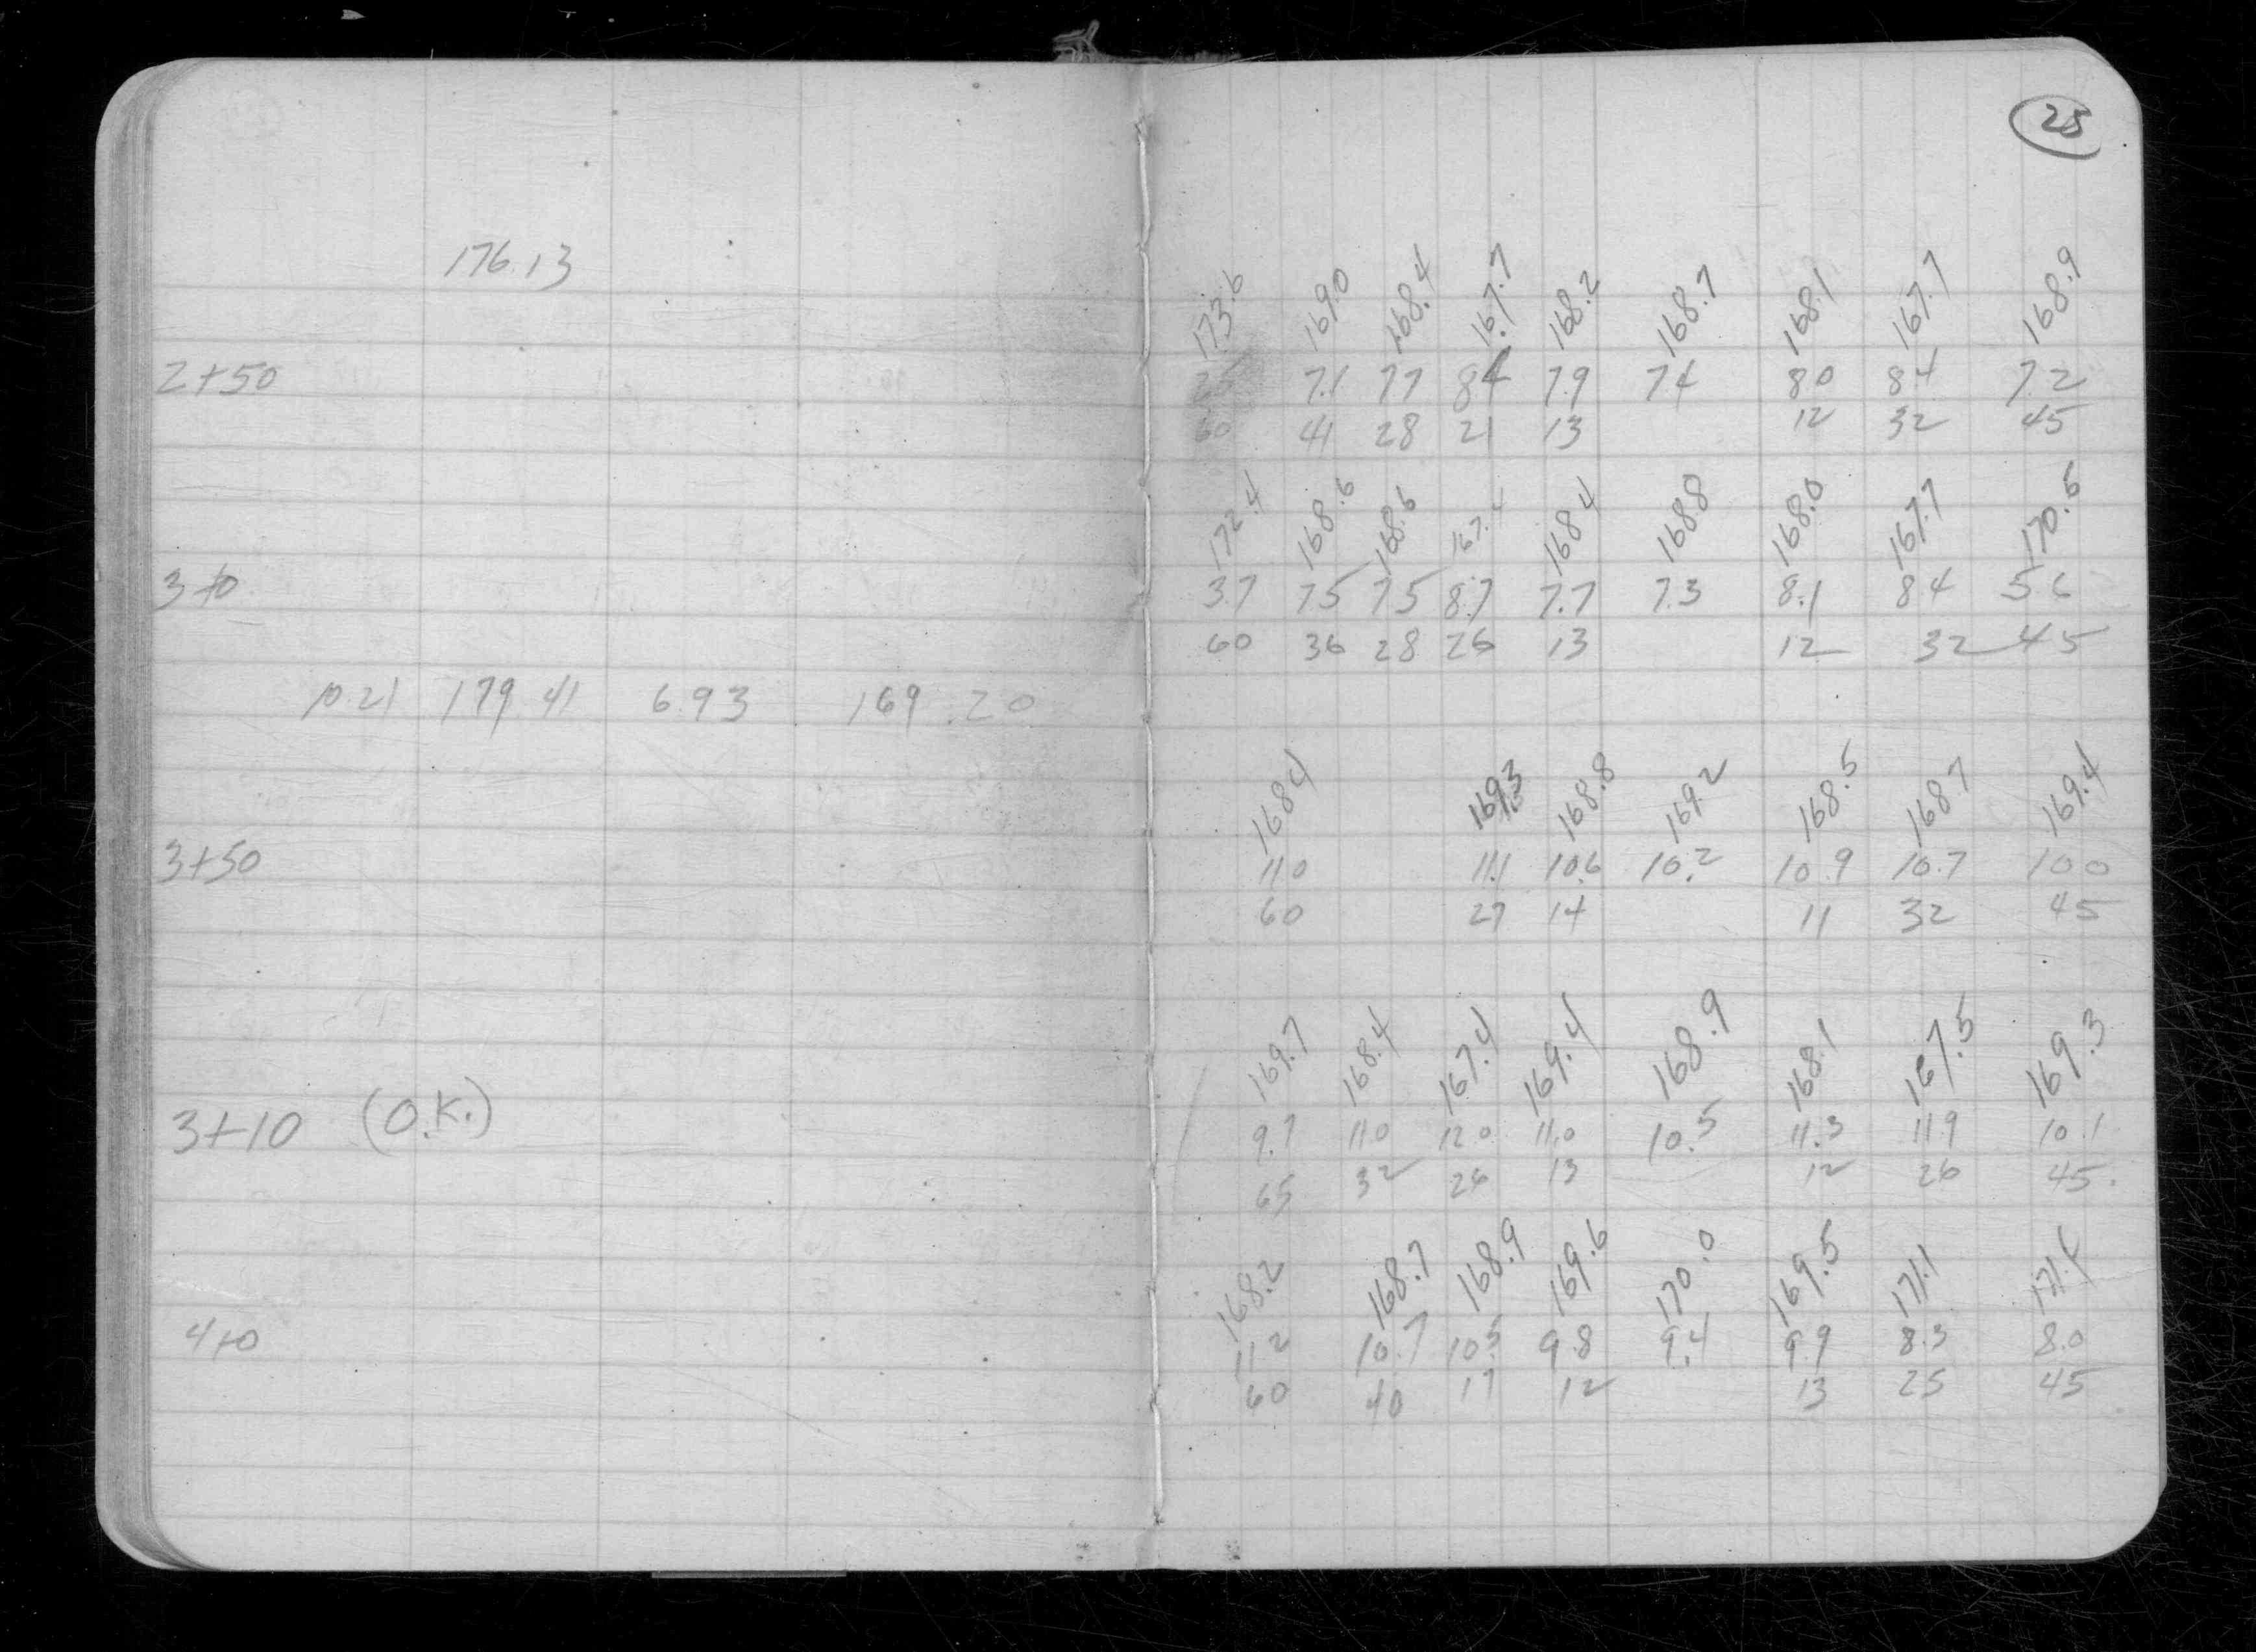 25
176.13
173.6 169.0 168.4 167.7 168.2 168.7 168.1 167.7 168.9
2+50 2.5 7.1 7.7 8.4 7.9 7.4 8.0 8.4 7.2
60 41 28 21 13 12 32 45
172.4 168.6 168.6 167.4 168.4 168.8 168.0 167.7 170.5
3+0 3.7 7.5 7.5 8.7 7.7 7.3 8.1 8.4 5.6
60 36 28 26 13 12 32 45
10.21 179.41 6.93 169.20
168.4 169.3 168.8 169.2 168.5 168.7 169.4
3+50 11.0 11.1 10.6 10.2 10.9 10.7 10.0
60 27 14 11 32 45
169.7 168.4 167.4 169.4 168.9 168.1 167.5 169.3
3+10 (O.K.) 9.7 11.0 12.0 11.0 10.5 11.3 11.9 10.1
65 32 26 13 12 26 45
168.2 168.7 168.9 169.6 170.0 169.5 171.1 171.4
4+0 11.2 10.7 10.5 9.8 9.4 9.9 8.3 8.0
60 40 17 12 13 25 45